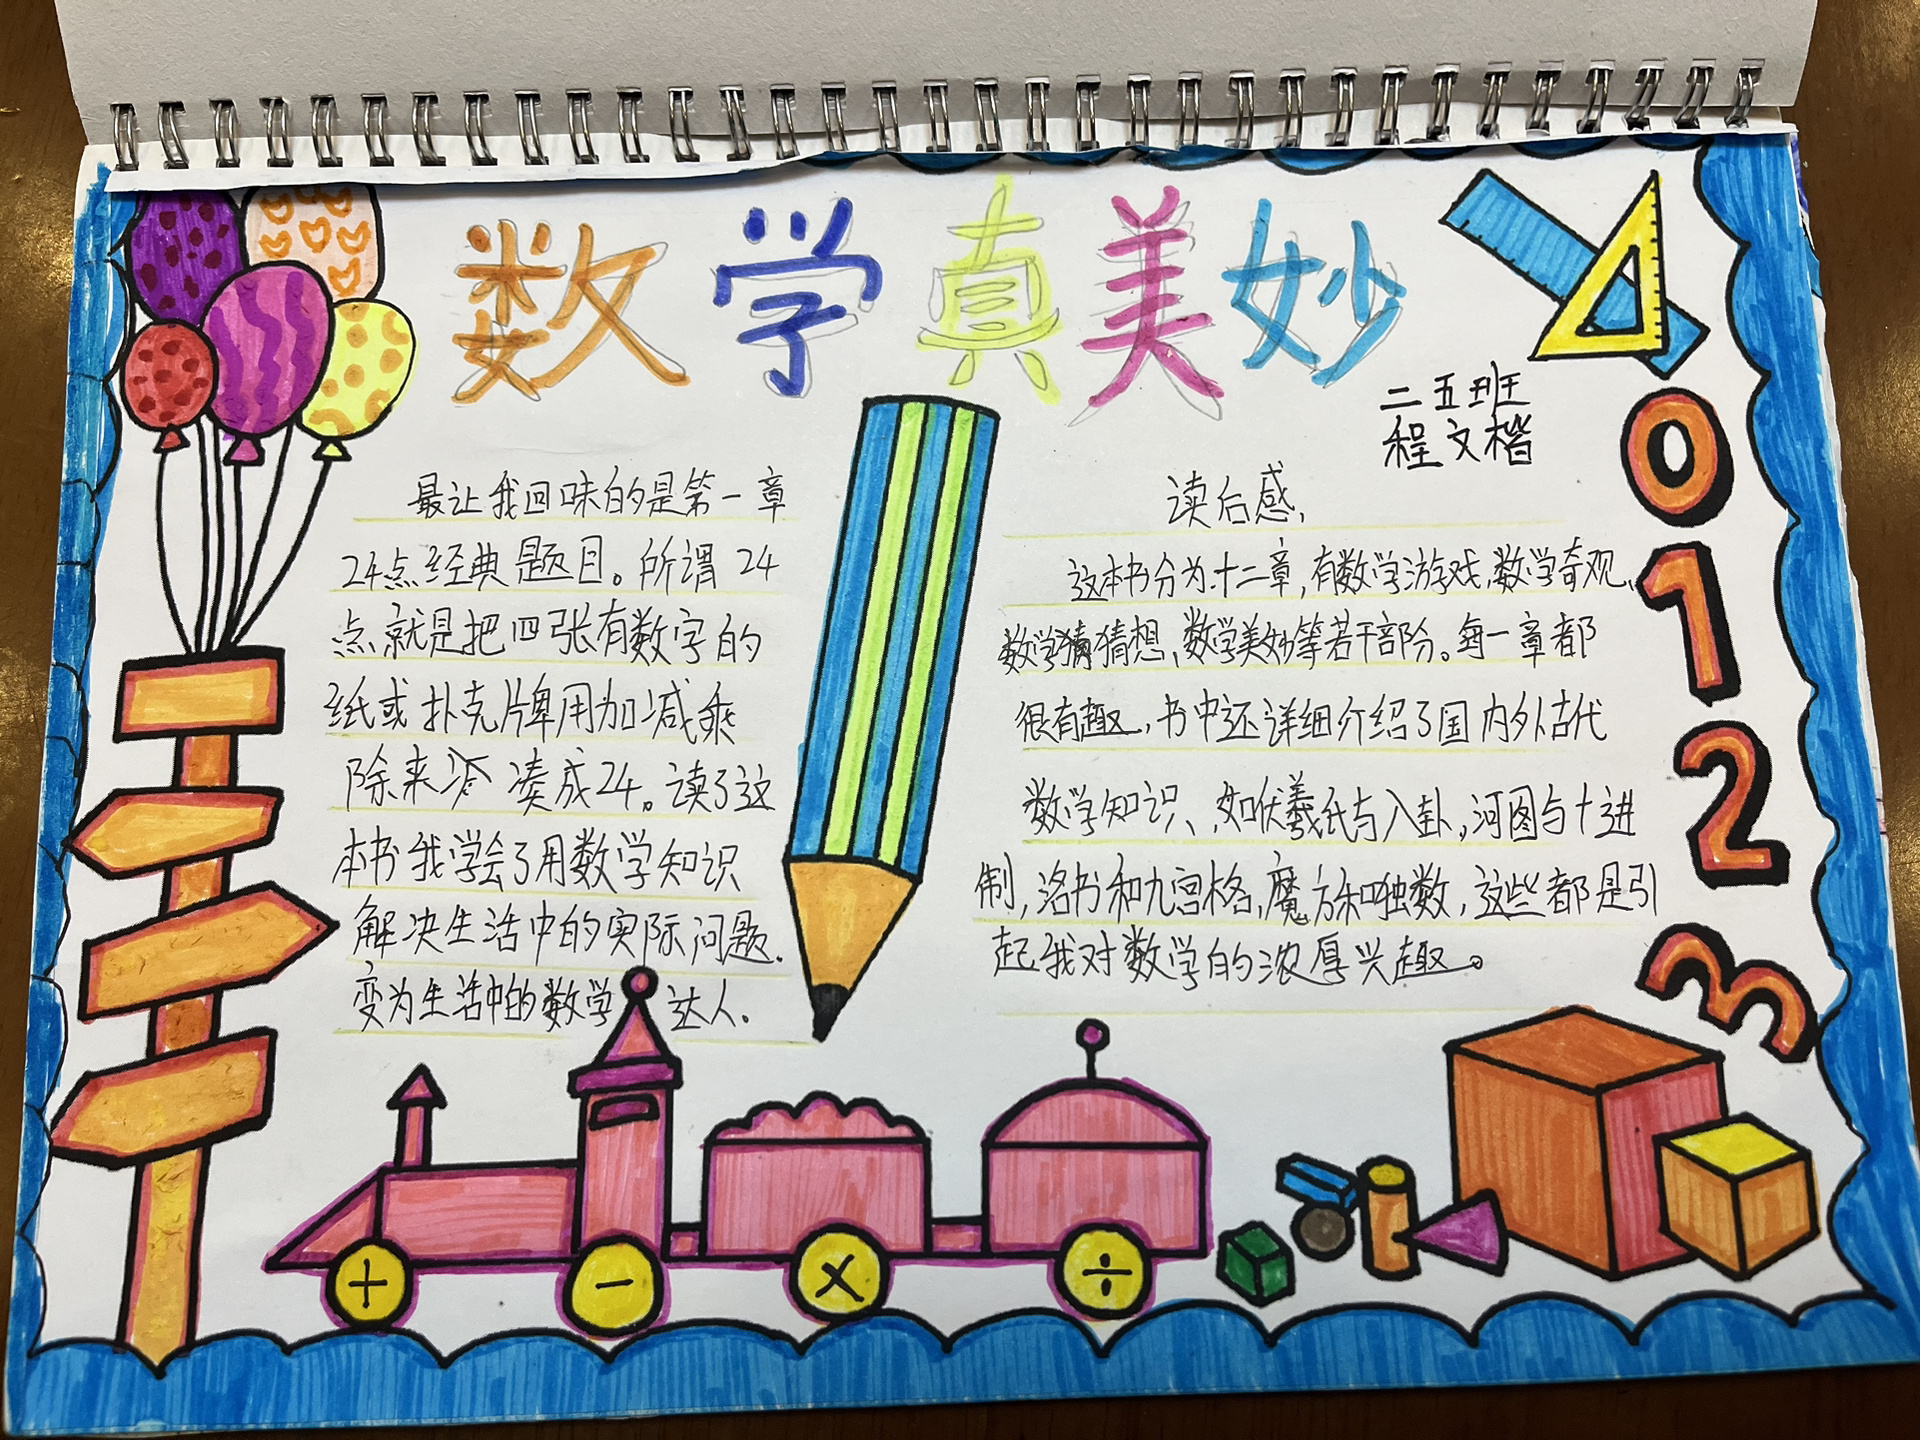 数学真美妙
二五班
程文楷
最让我回味的是第一章
24点经典题目。所谓24
点就是把四张有数字的
纸或扑克牌用加减乘
除来凑成24。读了这
本书我学会了用数学知识
解决生活中的实际问题.
变为生活中的数学达人.
读后感,
这本书分为十二章,有数学游戏,数学奇观,
数学猜想、数学美妙等若干部份。每一章都
很有趣,书中还详细介绍了国内外古代
数学知识、如伏羲氏与八卦,河图与十进
制,洛书和九宫格,魔方和独数,这些都是引
起我对数学的浓厚兴趣。
0
1
2
3
+ - × ÷